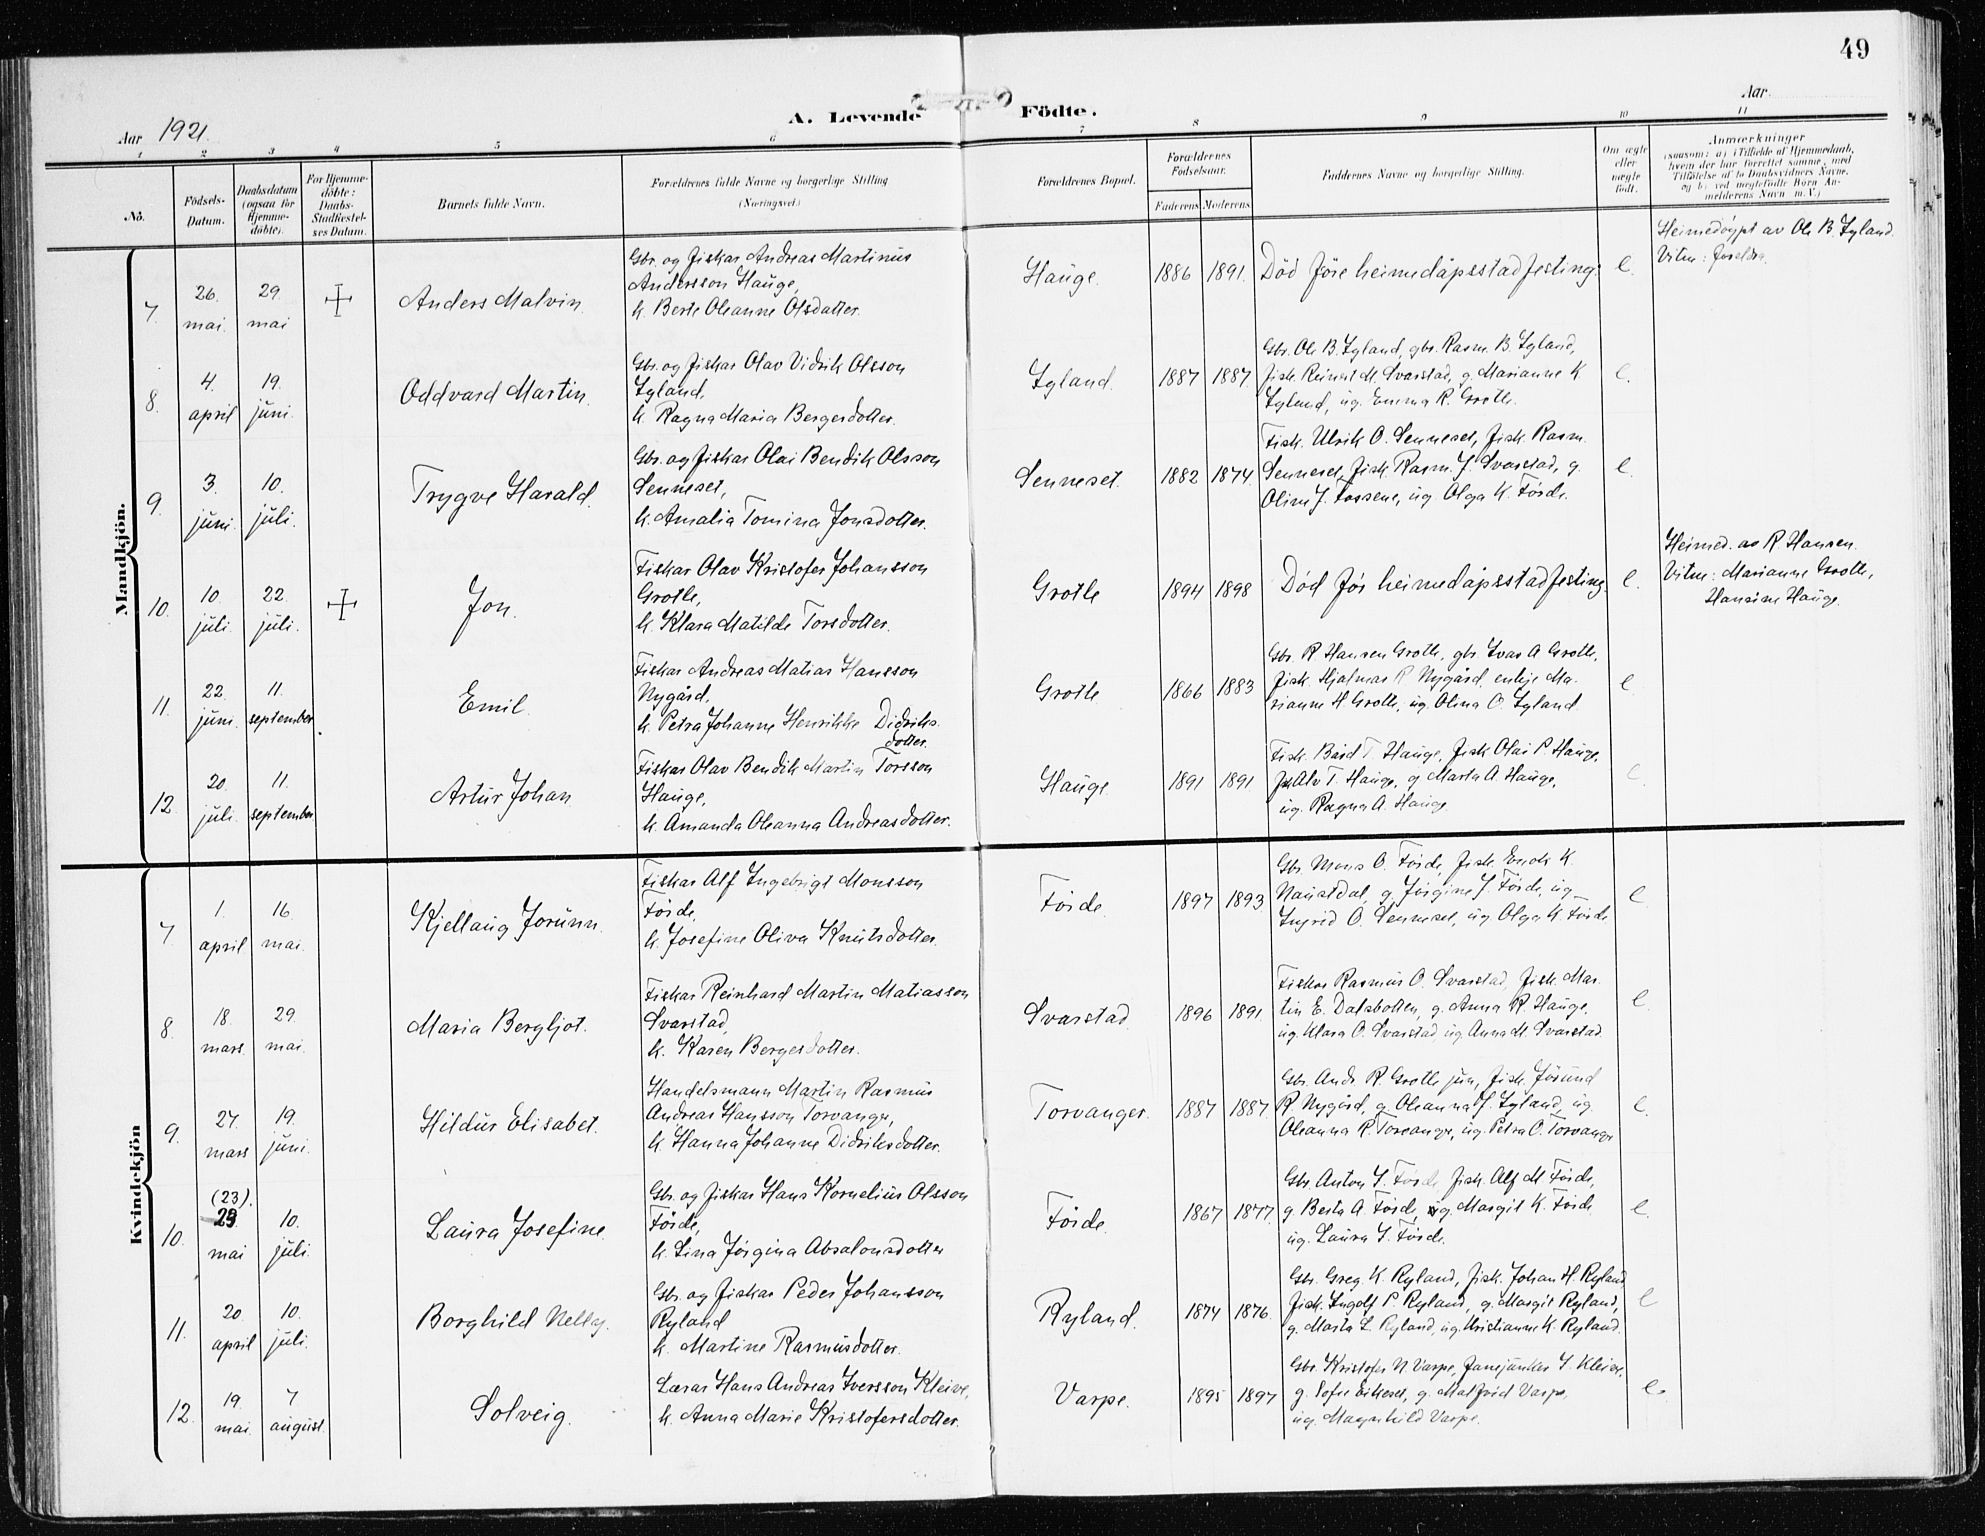 49
A. Levende Födte.
Aar 1921.
Aar.
1 2 3 4 5 6 7 8 9 10 11
No.
Födsels-
Datum.
Daabsdatum
(ogsaa for
Hjemme-
döbte).
For Hjemme-
döbte:
Daabs-
Stadfæstel-
ses Datum.
Barnets fulde Navn.
Forældrenes fulde Navne og borgerlige Stilling
(Næringsvei.)
Forældrenes Bopæl.
Forældrenes
Födselsaar.
Faderens Moderens
Faddernes Navne og borgerlige Stilling.
Om ægte
eller
uægte
födt.
Anmærkninger
(saasom: a) i Tilfælde af Hjemmedaab,
hvem der har forrettet samme, med
Tilföielse af to Daabsvidners Navne,
og b) ved uægtefödte Börn An-
melderens Navn m. V.)
Mandkjön.
7. 26. mai. 29. mai
Anders Malvin.
Gbr. og fiskar Andreas Martinus
Andersson Hauge,
k. Berte Oleanne Olsdatter.
Hauge. 1886 1891.
Död före heimedåpsstadfesting.
e.
Heimedöypt av Ole B. Lyland.
Vitne: foreldra.
8. 4. april 19. juni.
Oddvard Martin.
Gbr. og fiskar Olav Vidrik Olsson
Lyland,
k. Ragna Maria Bergesdotter.
Lyland. 1887 1887.
Gbr. Ole B. Lyland, gbr. Rasm. B. Lyland,
fisk. Reinert M. Svarstad, g. Marianne K
Lyland, ug. Emma R. Grotle.
e.
9. 3. juni. 10. juli.
Trygve Harald.
Gbr. og fiskar Olai Bendik Olsson
Senneset,
k. Amalia Tomina Jonsdotter.
Senneset. 1882 1874.
Fisk. Ulrik O. Senneset, fisk. Rasm.
Senneset, fisk. Rasm. J. Svarstad, g.
Oline J. Fossene, ug. Olga K. Förde.
e.
10. 10. juli. 22. juli.
Jon.
Fiskar Olav Kristofer Johansson
Grotle,
k. Klara Matilde Torsdotter.
Grotle 1894 1898
Död för heimedåpsstadfesting.
e.
Heimed. av R. Hansen.
Vitne: Marianne Grotle,
Hansine Hauge.
11. 22. juni. 11. september
Emil.
Fiskar Andreas Matias Hansson
Nygård,
k. Petra Johanne Henrikke Didriks-
dotter.
Grotle 1866 1883
Gbr. R. Hansen Grotle, gbr. Ivar A Grotle,
fisk. Hjalmar R Nygård, enkje Ma-
rianne H Grotle, ug. Olina O. Lyland
e
12 20. juli. 11. september
Artur Johan
Fiskar Olav Bendik Martin Torsson
Hauge,
k. Amanda Oleanna Andreasdotter.
Hauge 1891 1891
Fisk. Bård T. Hauge, fisk Olai P. Hauge,
Alv T. Hauge, g Marta A. Hauge,
ug. Ragna A. Hauge
e
Kvindekjön
7. 1. april 16. mai.
Kjellaug Jorunn.
Fiskar Alf Ingebrigt Monsson
Förde,
k. Josefine Oliva Knutsdotter.
Förde. 1897 1893.
Gbr. Mons O. Förde, fisk. Enok K.
Naustdal, g. Jörgine J. Förde, ug
Ingrid O. Senneset, ug. Olga K. Förde
e
8. 18. mars. 29. mai.
Maria Bergljot.
Fiskar Reinhard Martin Matiasson
Svarstad,
k. Karen Bergesdotter.
Svarstad 1896 1891.
Fiskar Rasmus O. Svarstad, fisk. Mar-
tin E. Dalsbotten, g. Anna R. Hauge,
ug. Klara O. Svarstad, ug. Anna M. Svarstad.
e.
9. 27. mars 19. juni.
Hildur Elisabet.
Handelsmann Martin Rasmus
Andreas Hansson Torvanger,
k. Hanna Johanne Didriksdotter.
Torvanger. 1887 1887
Gbr. Andr. R. Grotle jun, fisk. Jörund
R. Nygård, g. Oleanna J. Lyland, ug.
Oleanna R. Torvanger, ug. Petra O. Torvanger
e.
10. (23). 29. mai 10. juli.
Laura Josefine.
Gbr. og fiskar Hans Kornelius Olsson
Förde,
k. Lina Jörgina Absalonsdotter
Förde 1867 1877
Gbr. Anton I. Förde, fisk. Alf M. Förde,
g Berta A. Förde, ug. Margit K. Förde
ug. Laura I. Förde.
e.
11. 20. april 10. juli.
Borghild Nelly.
Gbr. og fiskar Peder Johansson
Ryland
k. Martine Rasmusdotter.
Ryland. 1874 1876.
Gbr. Greg. K. Ryland, fisk. Johan H. Ryland
fisk. Ingolf P. Ryland, g. Margit Ryland,
g. Marta L. Ryland, ug. Kristianne K. Ryland.
e
12. 19. mai. 7 august.
Solveig.
Lærar Hans Andreas Iversson Kleive,
k. Anna Marie Kristofersdotter.
Varpe. 1895 1897
Gbr. Kristofer N. Varpe, fanejunker I. Kleive,
g. Sofie Eikeset, g. Malfrid Varpe,
ug. Magnhild Varpe.
e.